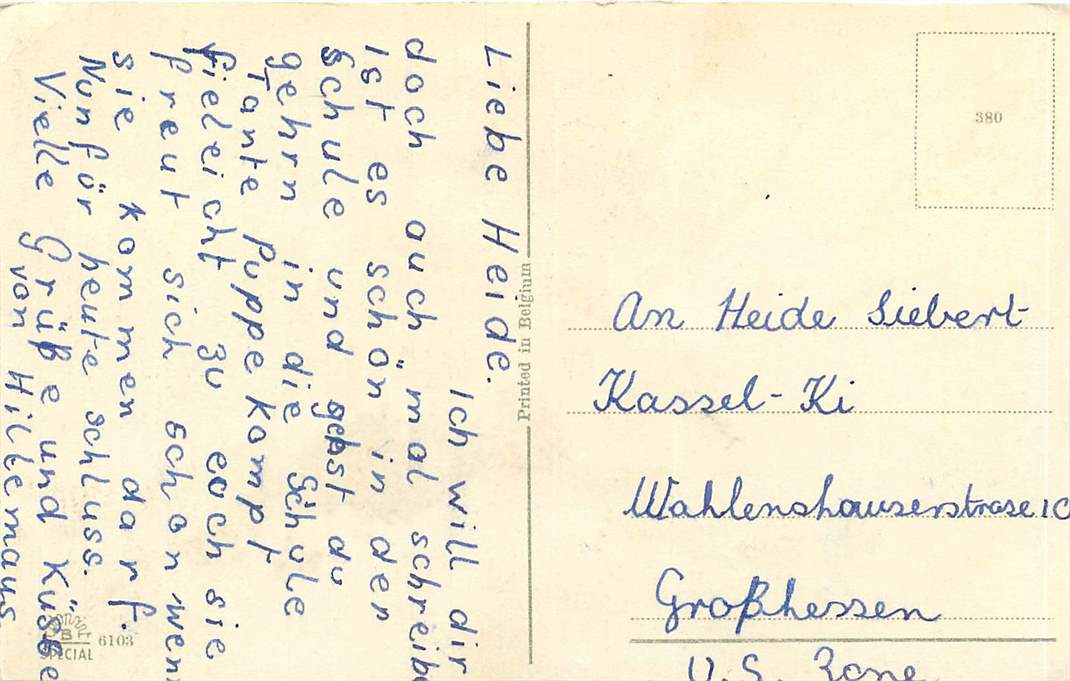 Liebe Heide.
Ich will dir
doch auch mal schreibe
Ist es schön in der
Schule und gehst du
gehrn in die Schule
Tante Puppe kompt
fieleicht zu euch sie
freut sich schon wenn
sie kommen darf.
Nun für heute schluss.
Vielle Grüße und Küsse
von Hillemaus
Printed in Belgium
SPECIAL
6103
380
An Heide Siebert
Kassel-Ki
Wahlenshauserstrasse 10
Großhessen
U.S. Zone